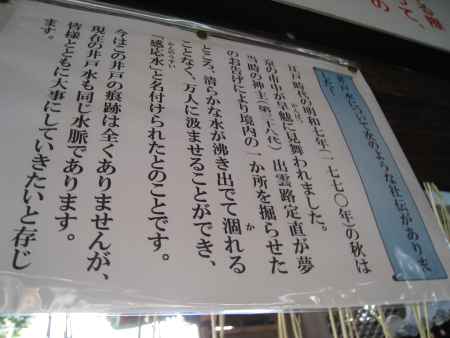 井戸水について次のような社伝がありま
す。
江戸時代の明和七年(一七七〇年)の秋は
京の市中が旱魃に見舞われました。
かんばつ
当時の神主(第三十八代)出雲路定直が夢
のお告げにより境内の一か所を掘らせた
ところ、清らかな水が沸き出でて涸れる
か
ことなく、万人に汲ませることができ、
「感応水」と名付けられたとのことです。
かんのうすい
今はこの井戸の痕跡は全くありませんが、
現在の井戸水も同じ水脈であります。
皆様とともに大事にしていきたいと存じ
ます。